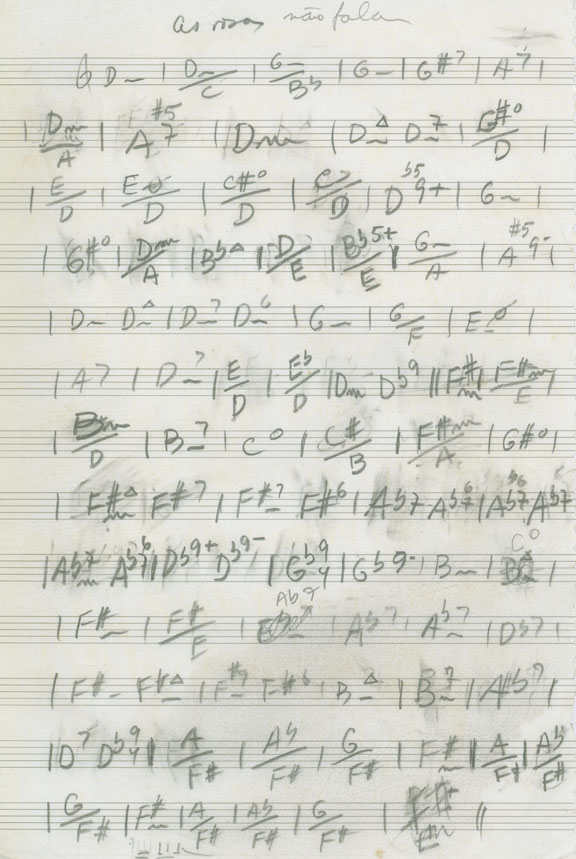 As rosas não falam
D– | Dm/C | G–/Bb | G– | G#7 | A7 |
| Dm/A | A7#5 | Dm | D–△ D–7 | G#°/D |
| E/D | Eø/D | C#°/D | | D b5 9+ | G– |
| G#° | Dm/A | Bb△ | D/E | Bb5+/E | G–/A | A #5 9- |
| D– D–△ | D–7 D–6 | G– | G/F | Eø |
| A7 | D–7 | E/D | Eb/D | Dm Db9 || F#m | F#m/E |
| Bm/D | B–7 | C° | C#/B | F#m/A | G#° |
| F#m△ F#7 | F#–7 F#6 | Ab7 Ab7 b6 | Ab7 b6 Ab7
| Abm7 Ab7 b6 | Db9+ Db9- | Gb9 4 | Gb9- | B– | C° |
| F#– | F#/E | Ab7 | Ab7 | Ab–7 | Db7 |
| F#– F#–△ | F#–7 F#6 | B–△ | B–7 | A#b7 |
| D7 Db9 4 || A/F# | Ab/F# | G/F# | F#m | A/F# | Ab/F#
| G/F# | F#m | A/F# | Ab/F# | G/F# | ||